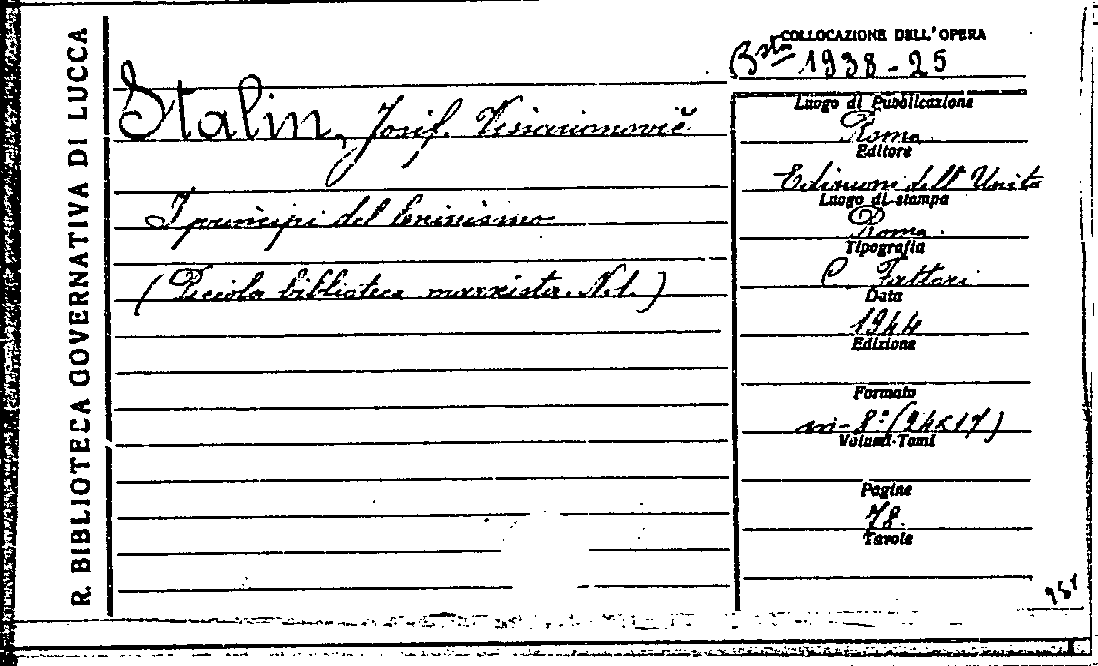 R. BIBLIOTECA GOVERNATIVA DI LUCCA
COLLOCAZIONE DELL'OPERA
Bsta 1938-25
Stalin, Josif Vissarionovič
I principi del leninismo
(Piccola biblioteca marxista. N.1.)
Luogo di Pubblicazione
Roma
Editore
Edizioni dell'Unità
Luogo di stampa
Roma.
Tipografia
C. Fattori
Data
1944
Edizione
Formato
in-8° (24x17)
Volumi-Tomi
Pagine
78.
Tavole